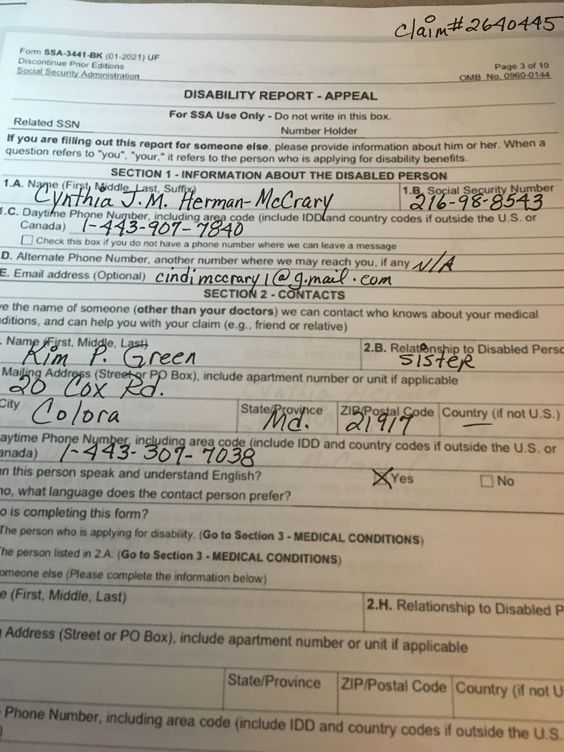 Claim# 2640445
Form SSA-3441-BK (01-2021) UF
Discontinue Prior Editions
Social Security Administration
Page 3 of 10
OMB No. 0960-0144
DISABILITY REPORT - APPEAL
For SSA Use Only - Do not write in this box.
Related SSN
Number Holder
If you are filling out this report for someone else, please provide information about him or her. When a
question refers to "you", "your," it refers to the person who is applying for disability benefits.
SECTION 1 - INFORMATION ABOUT THE DISABLED PERSON
1.A. Name (First, Middle, Last, Suffix)
Cynthia J.M. Herman-McCrary
1.B. Social Security Number
216-98-8543
1.C. Daytime Phone Number, including area code (include IDD and country codes if outside the U.S. or
Canada) 1-443-907-7840
Check this box if you do not have a phone number where we can leave a message
D. Alternate Phone Number, another number where we may reach you, if any N/A
E. Email address (Optional) cindimccrary1@g.mail.com
SECTION 2 - CONTACTS
ve the name of someone (other than your doctors) we can contact who knows about your medical
nditions, and can help you with your claim (e.g., friend or relative)
. Name (First, Middle, Last)
Kim P. Green
2.B. Relationship to Disabled Perso
Sister
Mailing Address (Street or PO Box), include apartment number or unit if applicable
20 Cox Rd.
City
Colora
State/Province
Md.
ZIP/Postal Code
21917
Country (if not U.S.)
—
aytime Phone Number, including area code (include IDD and country codes if outside the U.S. or
anada) 1-443-307-7038
an this person speak and understand English?
Yes
No
no, what language does the contact person prefer?
o is completing this form?
The person who is applying for disability. (Go to Section 3 - MEDICAL CONDITIONS)
he person listed in 2.A. (Go to Section 3 - MEDICAL CONDITIONS)
omeone else (Please complete the information below)
e (First, Middle, Last)
2.H. Relationship to Disabled P
Address (Street or PO Box), include apartment number or unit if applicable
State/Province
ZIP/Postal Code
Country (if not U
Phone Number, including area code (include IDD and country codes if outside the U.S.
)